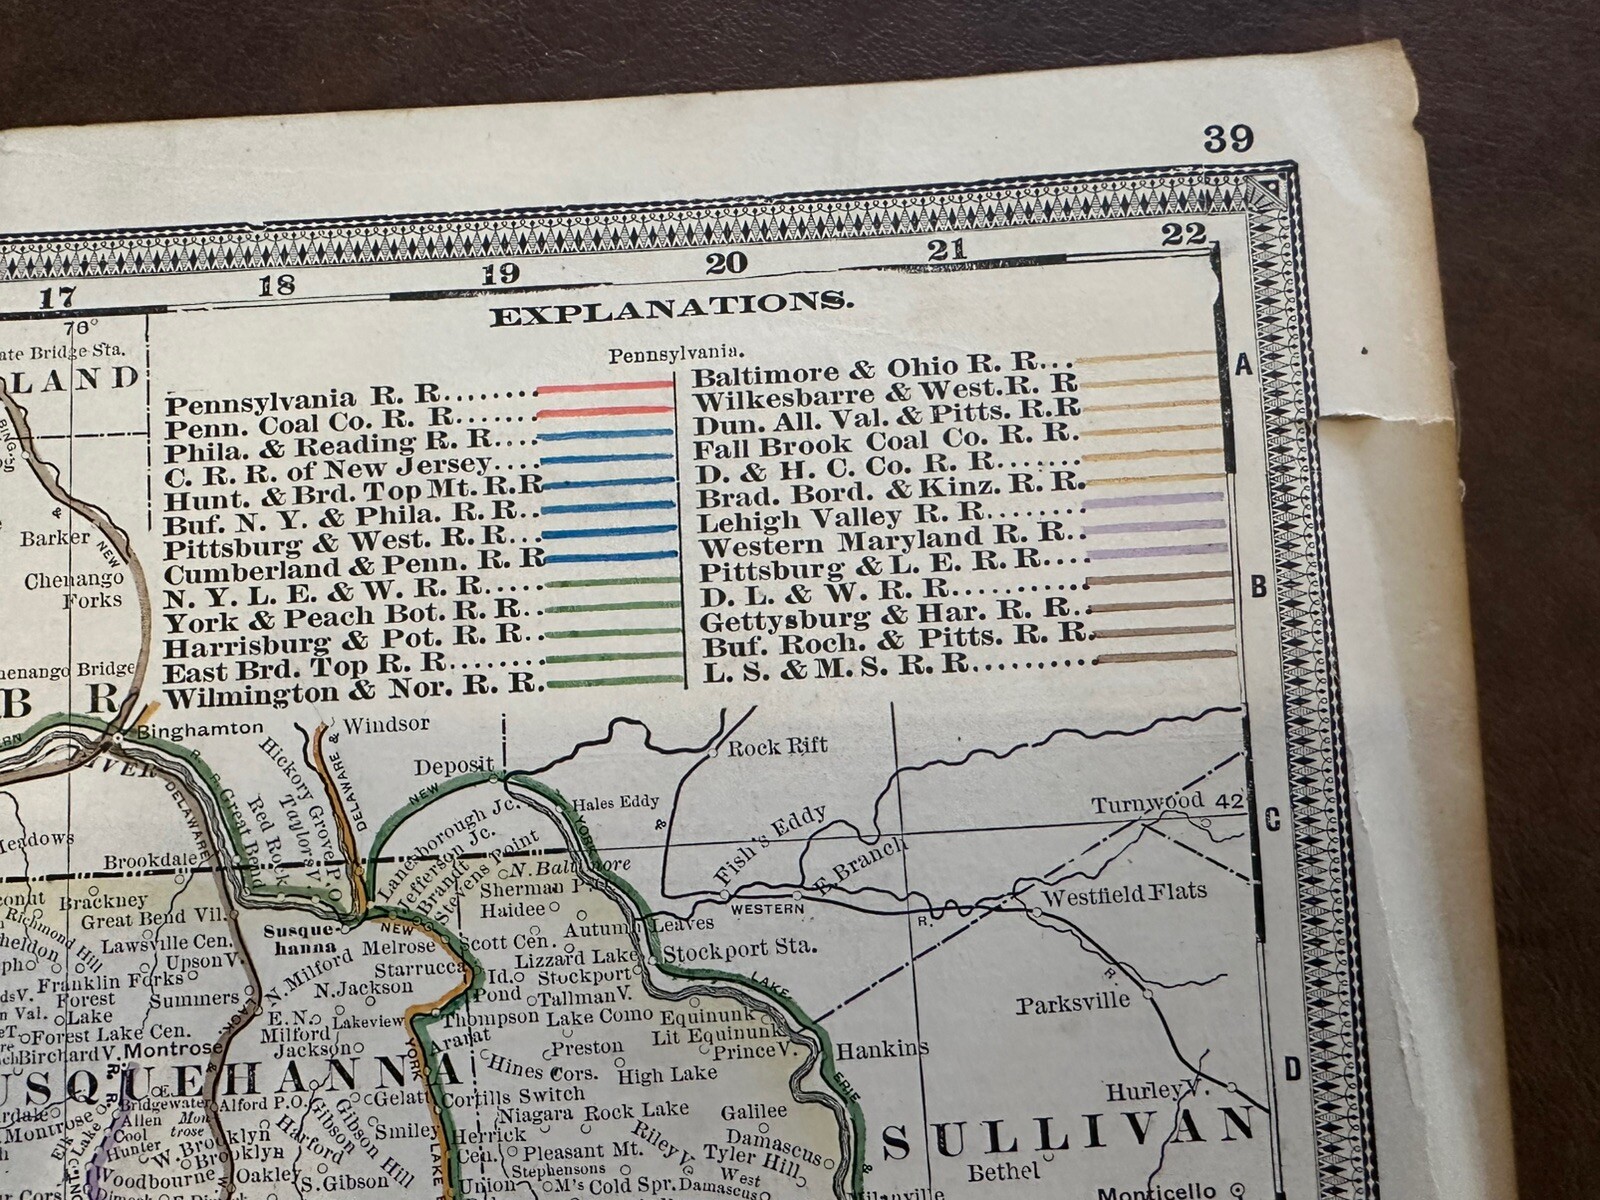 39
17
18
19
20
21
22
EXPLANATIONS.
Pennsylvania.
Pennsylvania R. R.......
Penn. Coal Co. R. R......
Phila. & Reading R. R....
C. R. R. of New Jersey....
Hunt. & Brd. Top Mt. R.R
Buf. N. Y. & Phila. R. R..
Pittsburg & West. R. R...
Cumberland & Penn. R. R
N. Y. L. E. & W. R. R.....
York & Peach Bot. R. R..
Harrisburg & Pot. R. R..
East Brd. Top R. R.......
Wilmington & Nor. R. R.
Baltimore & Ohio R. R...
Wilkesbarre & West.R. R
Dun. All. Val. & Pitts. R.R
Fall Brook Coal Co. R. R.
D. & H. C. Co. R. R.......
Brad. Bord. & Kinz. R. R.
Lehigh Valley R. R........
Western Maryland R. R..
Pittsburg & L. E. R. R....
D. L. & W. R. R..........
Gettysburg & Har. R. R..
Buf. Roch. & Pitts. R. R.
L. S. & M. S. R. R.........
A
B
C
D
76°
ate Bridge Sta.
LAND
Barker
NEW
Chenango
Forks
henango Bridge
B R
Binghamton
RIVER
DELAWARE
Great Bend
Red Rock
Hickory Grove P.O.
Taylors V.
DELAWARE &
Windsor
Deposit
NEW
YORK
Hales Eddy
Rock Rift
&
Fish's Eddy
E. Branch
Turnwood 42
WESTERN
R.
R.
Westfield Flats
Parksville
Hurley V.
SULLIVAN
Bethel
Monticello
Meadows
Brookdale
Brackney
Great Bend Vil.
Lawsville Cen.
Upson V.
Richmond Hill
Franklin Forks
Forest
Lake
Summers
Forest Lake Cen.
Birchard V.
Montrose
LACK.
&
Susque-
hanna
NEW
Lanesborough Jc.
Jefferson Jc.
Brandt
Stevens Point
N. Baltimore
Sherman
Haidee
Autumn Leaves
Melrose
Scott Cen.
Lizzard Lake
Stockport Sta.
Stockport
Starrucca
N. Milford
N. Jackson
Id.
Pond
Tallman V.
LAKE
E.N.
Milford
Lakeview
Jackson
Thompson
Lake Como
Equinunk
Lit Equinunk
Ararat
Preston
Prince V.
Hankins
ERIE
&
YORK
Hines Cors.
High Lake
SUSQUEHANNA
R. R.
Gelatt
Corfills Switch
Bridgewater
Alford P.O.
Allen
Montrose
Cool
Hunter
W. Brooklyn
Brooklyn
Woodbourne
Oakley
S. Gibson
Harford
Gibson
Gibson Hill
Smiley
Elk Lake
Niagara
Rock Lake
Galilee
Herrick
Cen.
Pleasant Mt.
Riley V.
Damascus
Tyler Hill
Stephensons
West
Damascus
Union
M's Cold Spr.
LAKE
Milanville